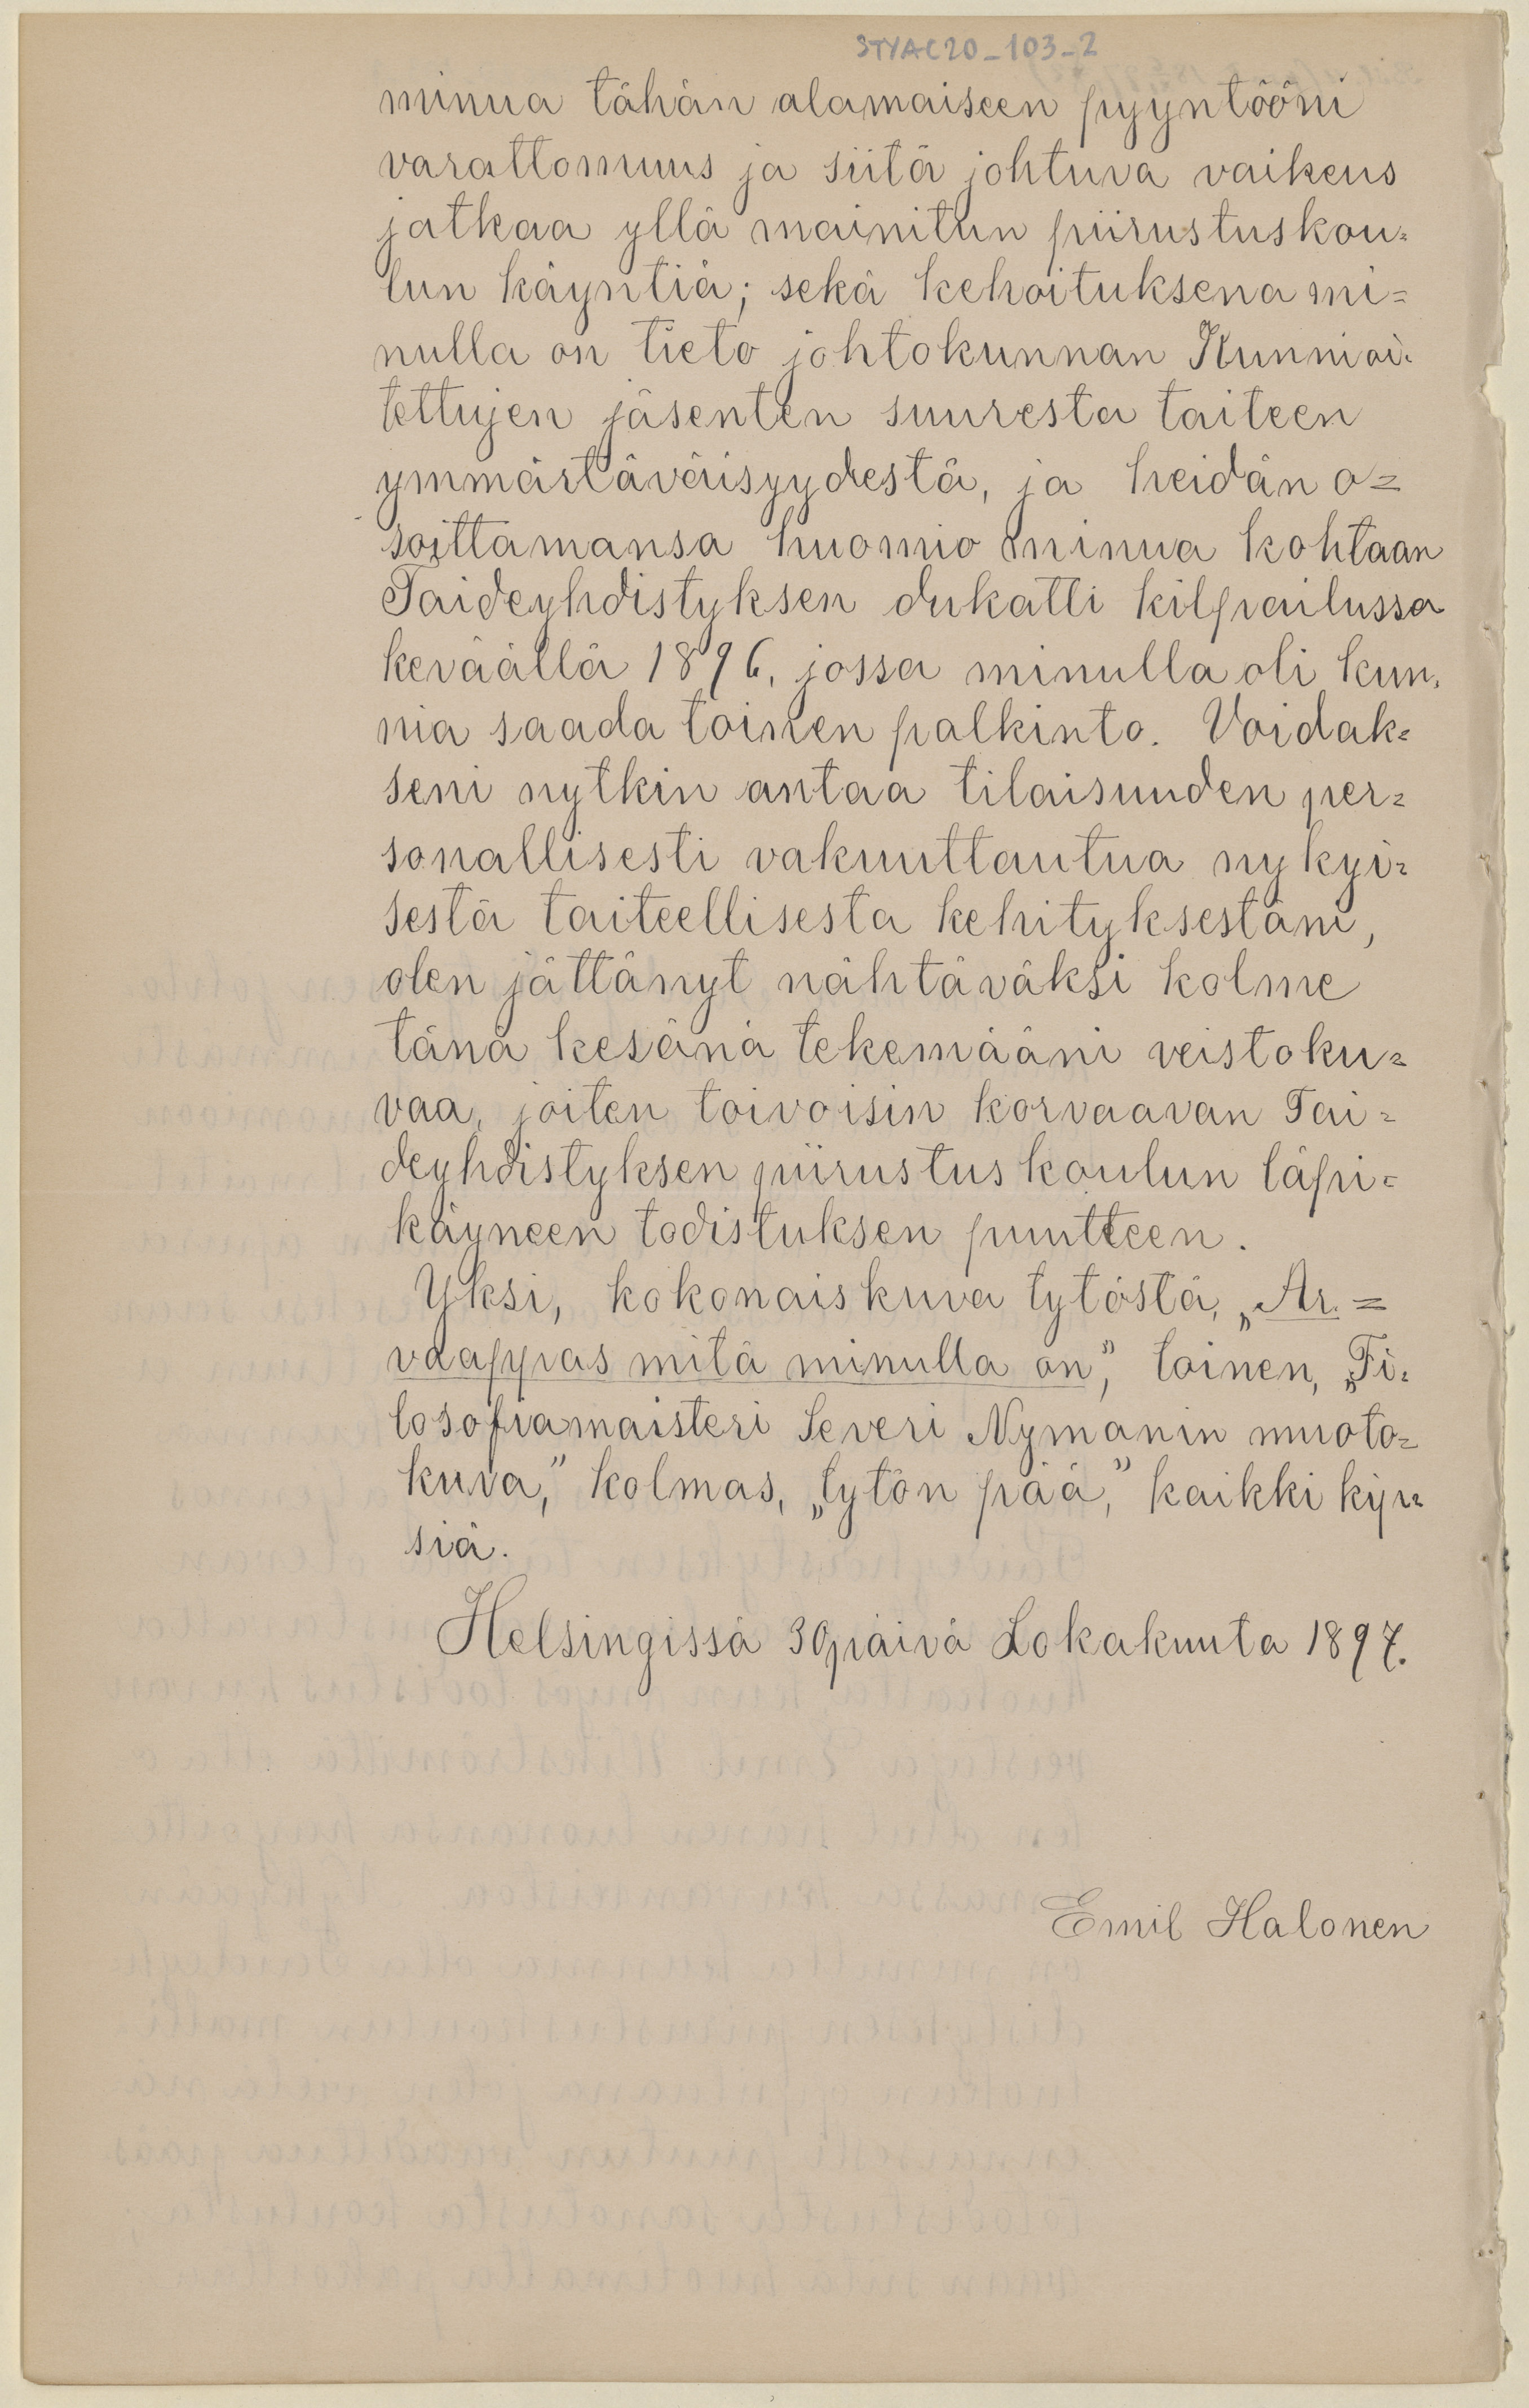 STYAC20_103_2
minua tähän alamaiseen pyyntööni
varattomuus ja siitä johtuva vaikeus
jatkaa yllä mainitun piirustuskou=
lun käyntiä; sekä kehoituksena mi=
nulla on tieto johtokunnan Kunnioi=
tettujen jäsenten suuresta taiteen
ymmärtäväisyydestä, ja heidän o=
soittamansa huomio minua kohtaan
Taideyhdistyksen dukatti kilpailussa
keväällä 1896, jossa minulla oli kun=
nia saada toinen palkinto. Voidak=
seni nytkin antaa tilaisuuden per=
sonallisesti vakuuttautua nykyi=
sestä taiteellisesta kehityksestäni,
olen jättänyt nähtäväksi kolme
tänä kesänä tekemääni veistoku=
vaa, joiten toivoisin korvaavan Tai=
deyhdistyksen piirustuskoulun läpi=
käyneen todistuksen puutteen.
Yksi, kokonaiskuva tytöstä, „Ar.=
vaappas mitä minulla on”, toinen, „Fi=
losofiamaisteri Severi Nymanin muoto=
kuva,” kolmas, „tytön pää,” kaikki kip=
siä.
Helsingissä 30 päivä Lokakuuta 1897.
Emil Halonen